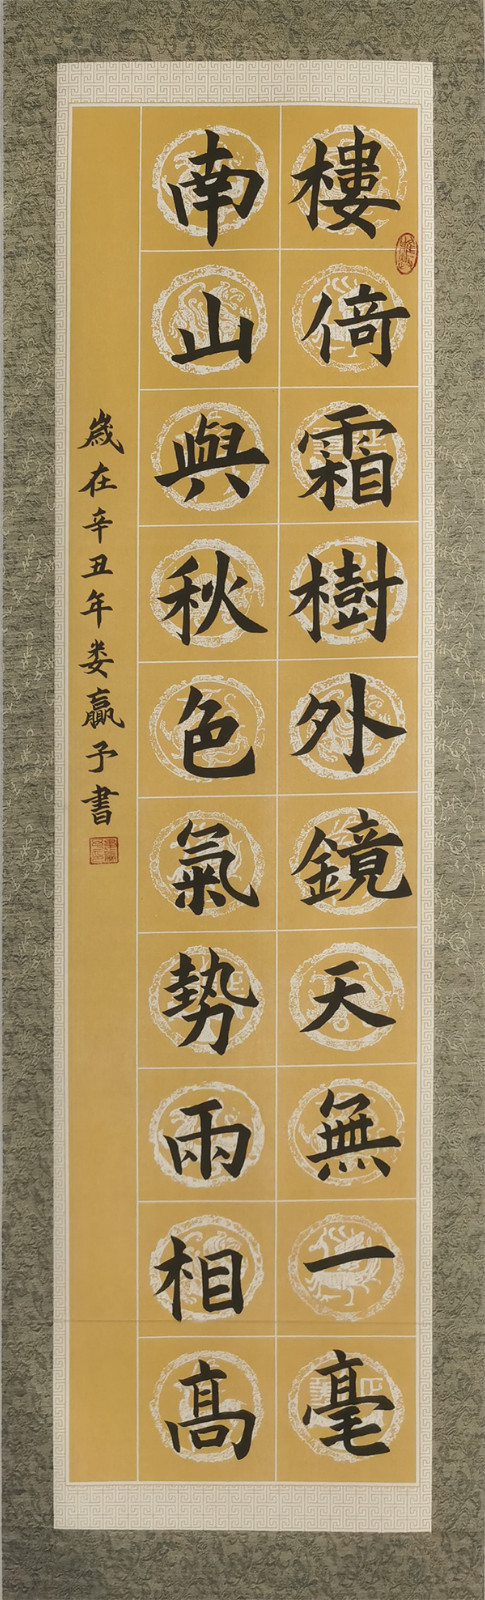 樓倚霜樹外鏡天無一毫
南山與秋色氣勢兩相高
歲在辛丑年娄贏予書